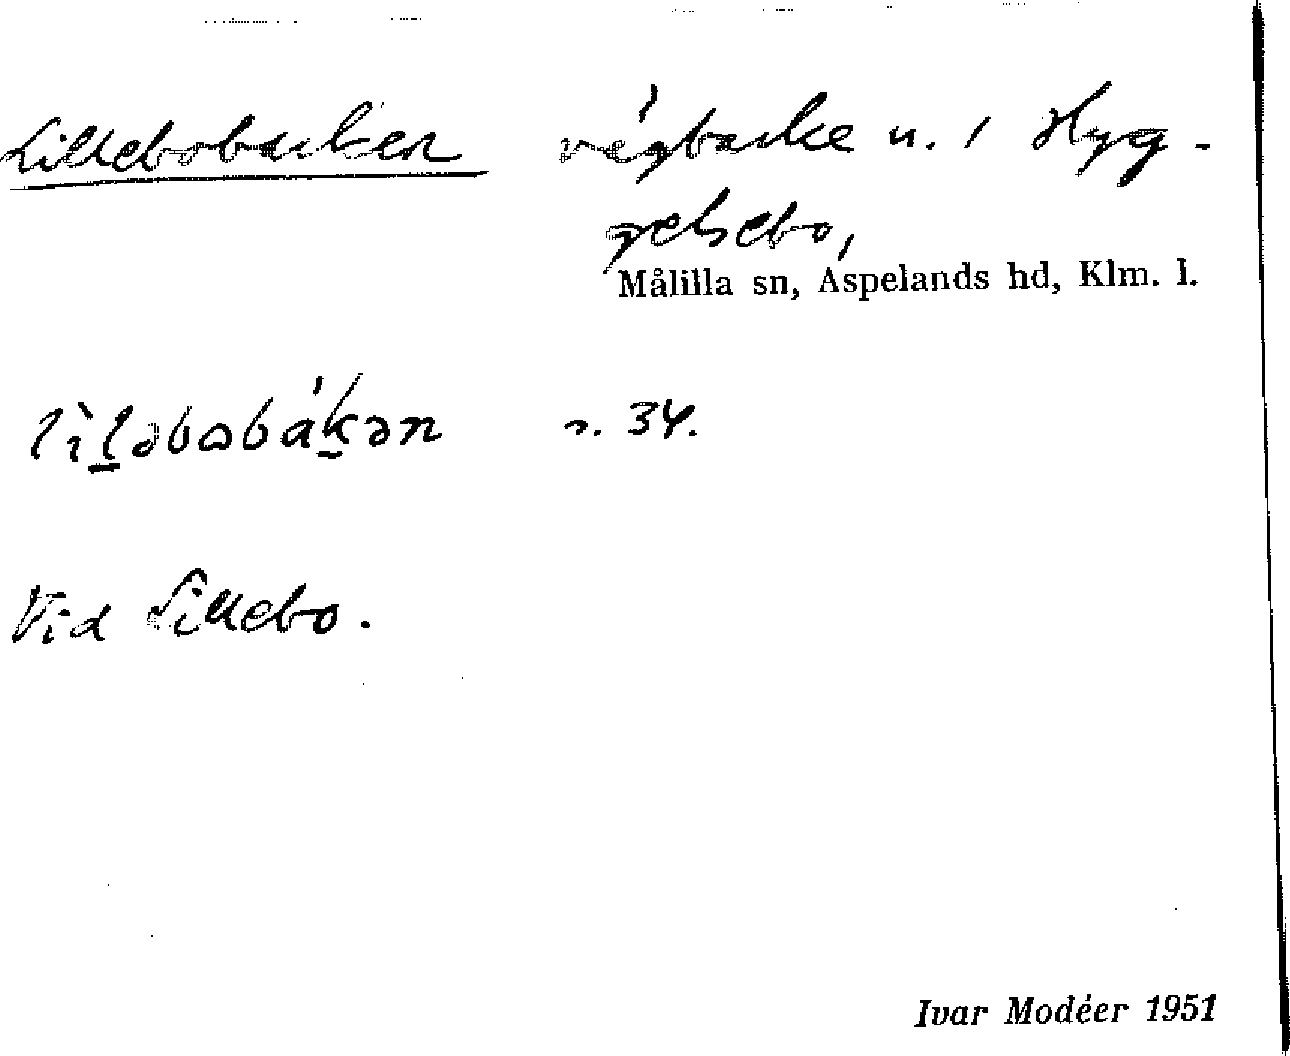 Lillebobacken vägbacke u. 1 Hyg-
gelsebo,
Målilla sn, Aspelands hd, Klm. l.
lìl̠əbobák̠ən s. 34.
Vid Lillebo.
Ivar Modéer 1951